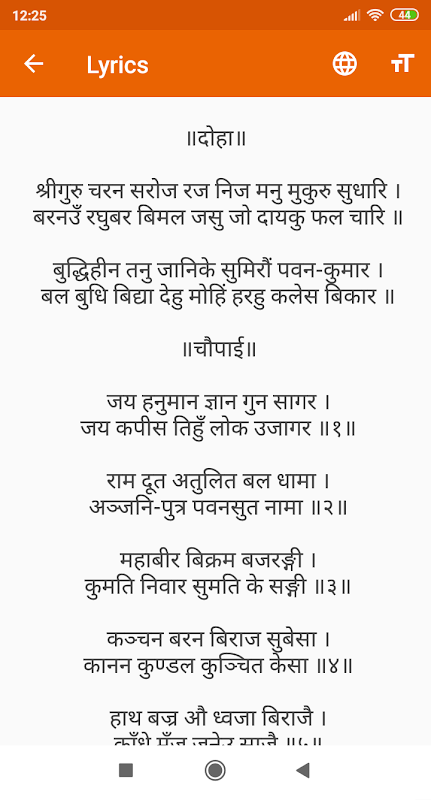 12:25
44
Lyrics
॥दोहा॥
श्रीगुरु चरन सरोज रज निज मनु मुकुरु सुधारि ।
बरनउँ रघुबर बिमल जसु जो दायकु फल चारि ॥
बुद्धिहीन तनु जानिके सुमिरौं पवन-कुमार ।
बल बुधि बिद्या देहु मोहिं हरहु कलेस बिकार ॥
॥चौपाई॥
जय हनुमान ज्ञान गुन सागर ।
जय कपीस तिहुँ लोक उजागर ॥१॥
राम दूत अतुलित बल धामा ।
अञ्जनि-पुत्र पवनसुत नामा ॥२॥
महाबीर बिक्रम बजरङ्गी ।
कुमति निवार सुमति के सङ्गी ॥३॥
कञ्चन बरन बिराज सुबेसा ।
कानन कुण्डल कुञ्चित केसा ॥४॥
हाथ बज्र औ ध्वजा बिराजै ।
काँधे मूँज जनेउ साजै ॥५॥